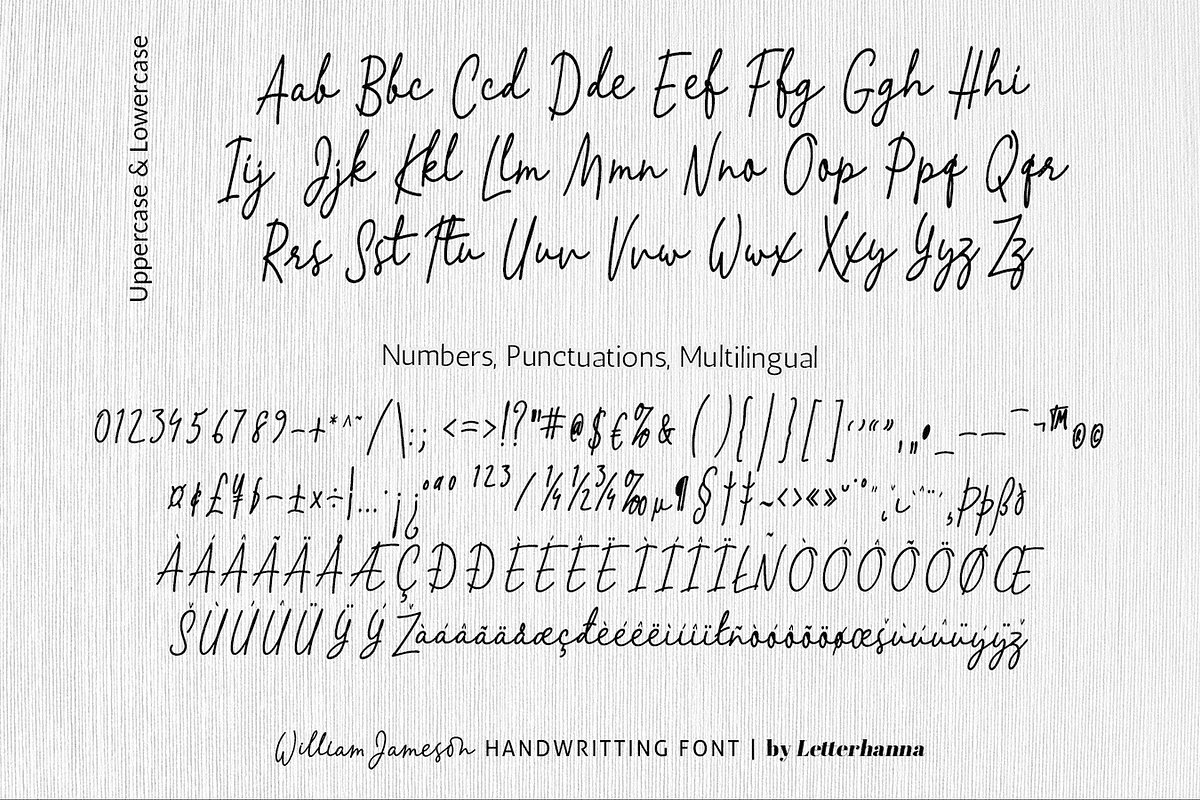 Uppercase & Lowercase
Aab Bbc Ccd Dde Eef Ffg Ggh Hhi
Iij Jjk Kkl Llm Mmn Nno Oop Ppq Qqr
Rrs Sst Ttu Uuv Vvw Wwx Xxy Yyz Zz
Numbers, Punctuations, Multilingual
0123456789-+*^~/\:; <=>!?"#@$€%& (){|}[]‘’“”‚„•_–— ¯¬™®©
¤¢£¥ƒ−±×÷¦…·¡¿°ªº ¹²³⁄¼½¾‰µ¶§†‡~‹›«»˘˙°˝¸˛ˆˇ¨¸Þþßð
ÀÁÂÃÄÅÆÇÐĐÈÉÊËÌÍÎÏŁÑÒÓÔÕÖØŒ
ŠÙÚÛÜŸÝŽàáâãäåæçđèéêëìíîïłñòóôõöøœšùúûüýÿž
William Jameson HANDWRITTING FONT | by Letterhanna